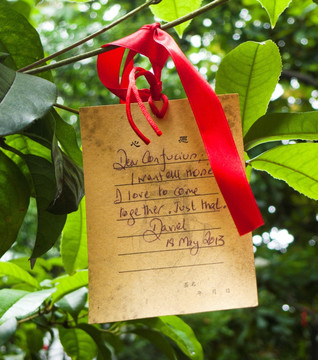 心 愿
Dear Confucius,
I want all those
I love to come
together. Just that.
Daniel
19 May 2013
年 月 日